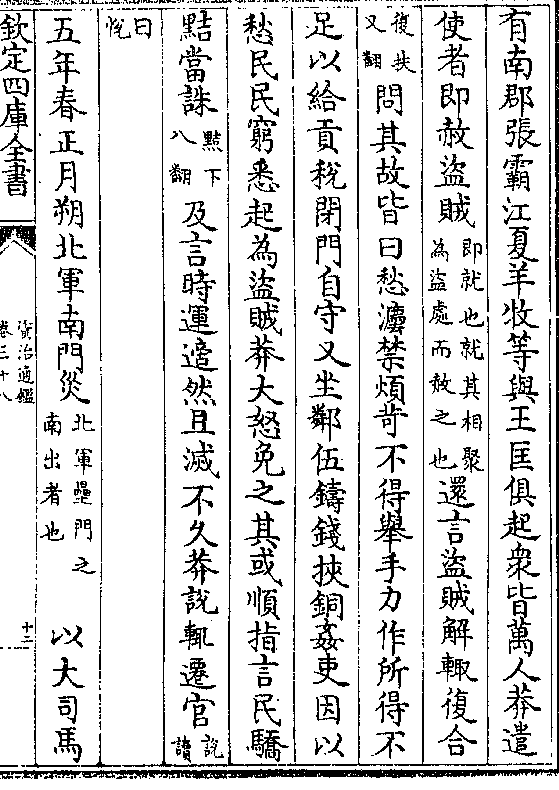 有南郡張霸江夏羊牧等與王匡俱起衆皆萬人莽遣
使者即赦盜賊即就也就其相聚為盜處而赦之也還言盜賊解輙復合
復扶又翻問其故皆曰愁灋禁煩苛不得舉手力作所得不
足以給貢稅閉門自守又坐鄰伍鑄錢挾銅姦吏因以
愁民民窮悉起為盜賊莽大怒免之其或順指言民驕
黠當誅黠下八翻及言時運適然且滅不久莽說輙遷官說讀
曰悅
五年春正月朔北軍南門災北軍壘門之南出者也以大司馬
欽定四庫全書
資治通鑑
卷三十八
十三